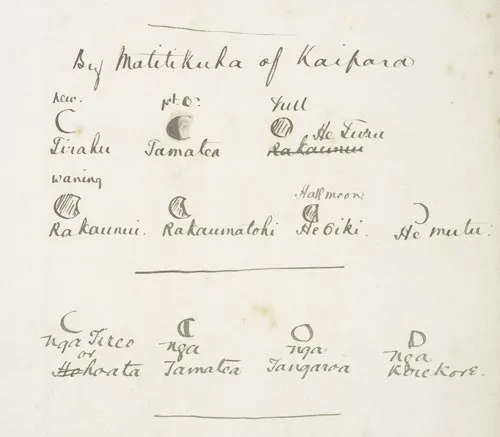 By Matitikuha of Kaipara
new. 1st Q. Full
Tirahu Tamatea He Turu
Rakaunui
waning
Half moon
Rakaunui. Rakaumatohi He Oiki. He mutu.
nga Tireo nga nga nga
or
Hohoata Tamatea Tangaroa Korekore.